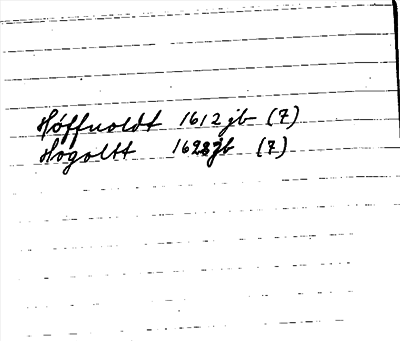 Høffnoldt 1612 jb (7)
Hogoltt jb (7)